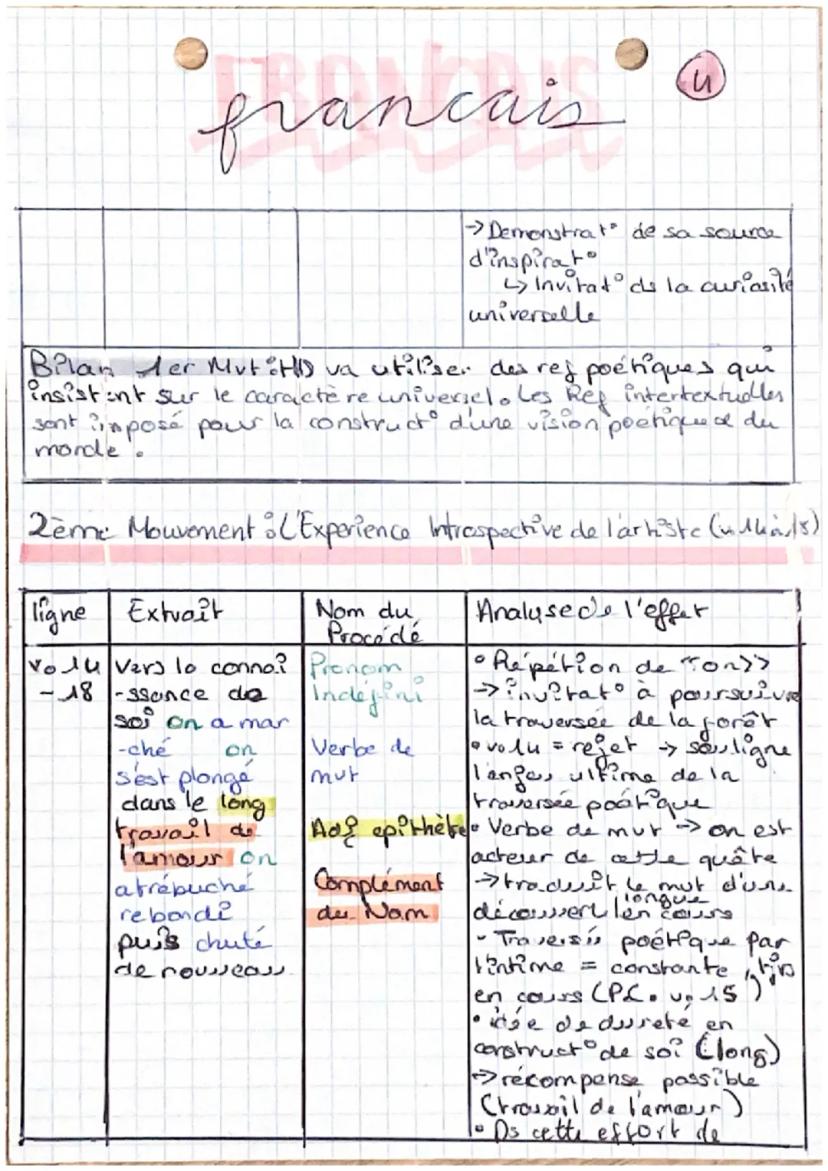 FRANCAIS
francais
4
→ Demonstrat° de sa source
d'inspirat°
↳ Invitat° ds la curiosité
universelle
Bilan 1er Mvt : HD va utiliser des ref poétiques qui
insistent sur le caractère universel. Les Ref intertextuelles
sont imposé pour la construct° d'une vision poétique du
monde.
2ème Mouvement : L'Experience Introspective de l'artiste
ligne
Extrait
Nom du
Procédé
Analyse de l'effet
v. 14
- 18
Vers la connai
-ssance de
soi on a mar
-ché on
s'est plongé
dans le long
travail de
l'amour on
a trébuché
rebondi
puis chuté
de nouveau
Pronom
Indéfini
Verbe de
mvt
Adj epithète
Complément
du Nom
• Répétion de "on>>
→ invitat° à poursuivre
la traversée de la forêt
• v.14 = rejet → souligne
ultime de la
traversée poétique
• Verbe de mvt → on est
acteur de cette quête
→ traduit le mvt d'une
longue
découvert en cours
- poétique par
l'intime = constante,
en cours (P.C. v. 15)
• idée de dureté en
construct° de soi (long)
→ récompense possible
(travail de l'amour)
• Ds cette effort de